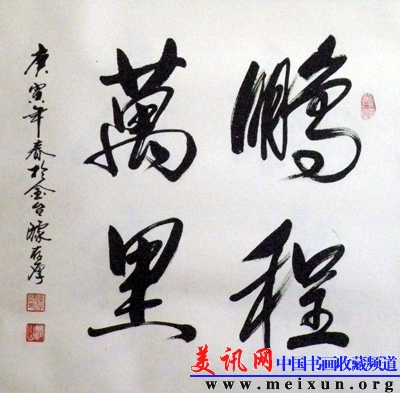 鵬程
萬里
庚寅年春於金台
美讯网
中国书画收藏频道
www.meixun.org